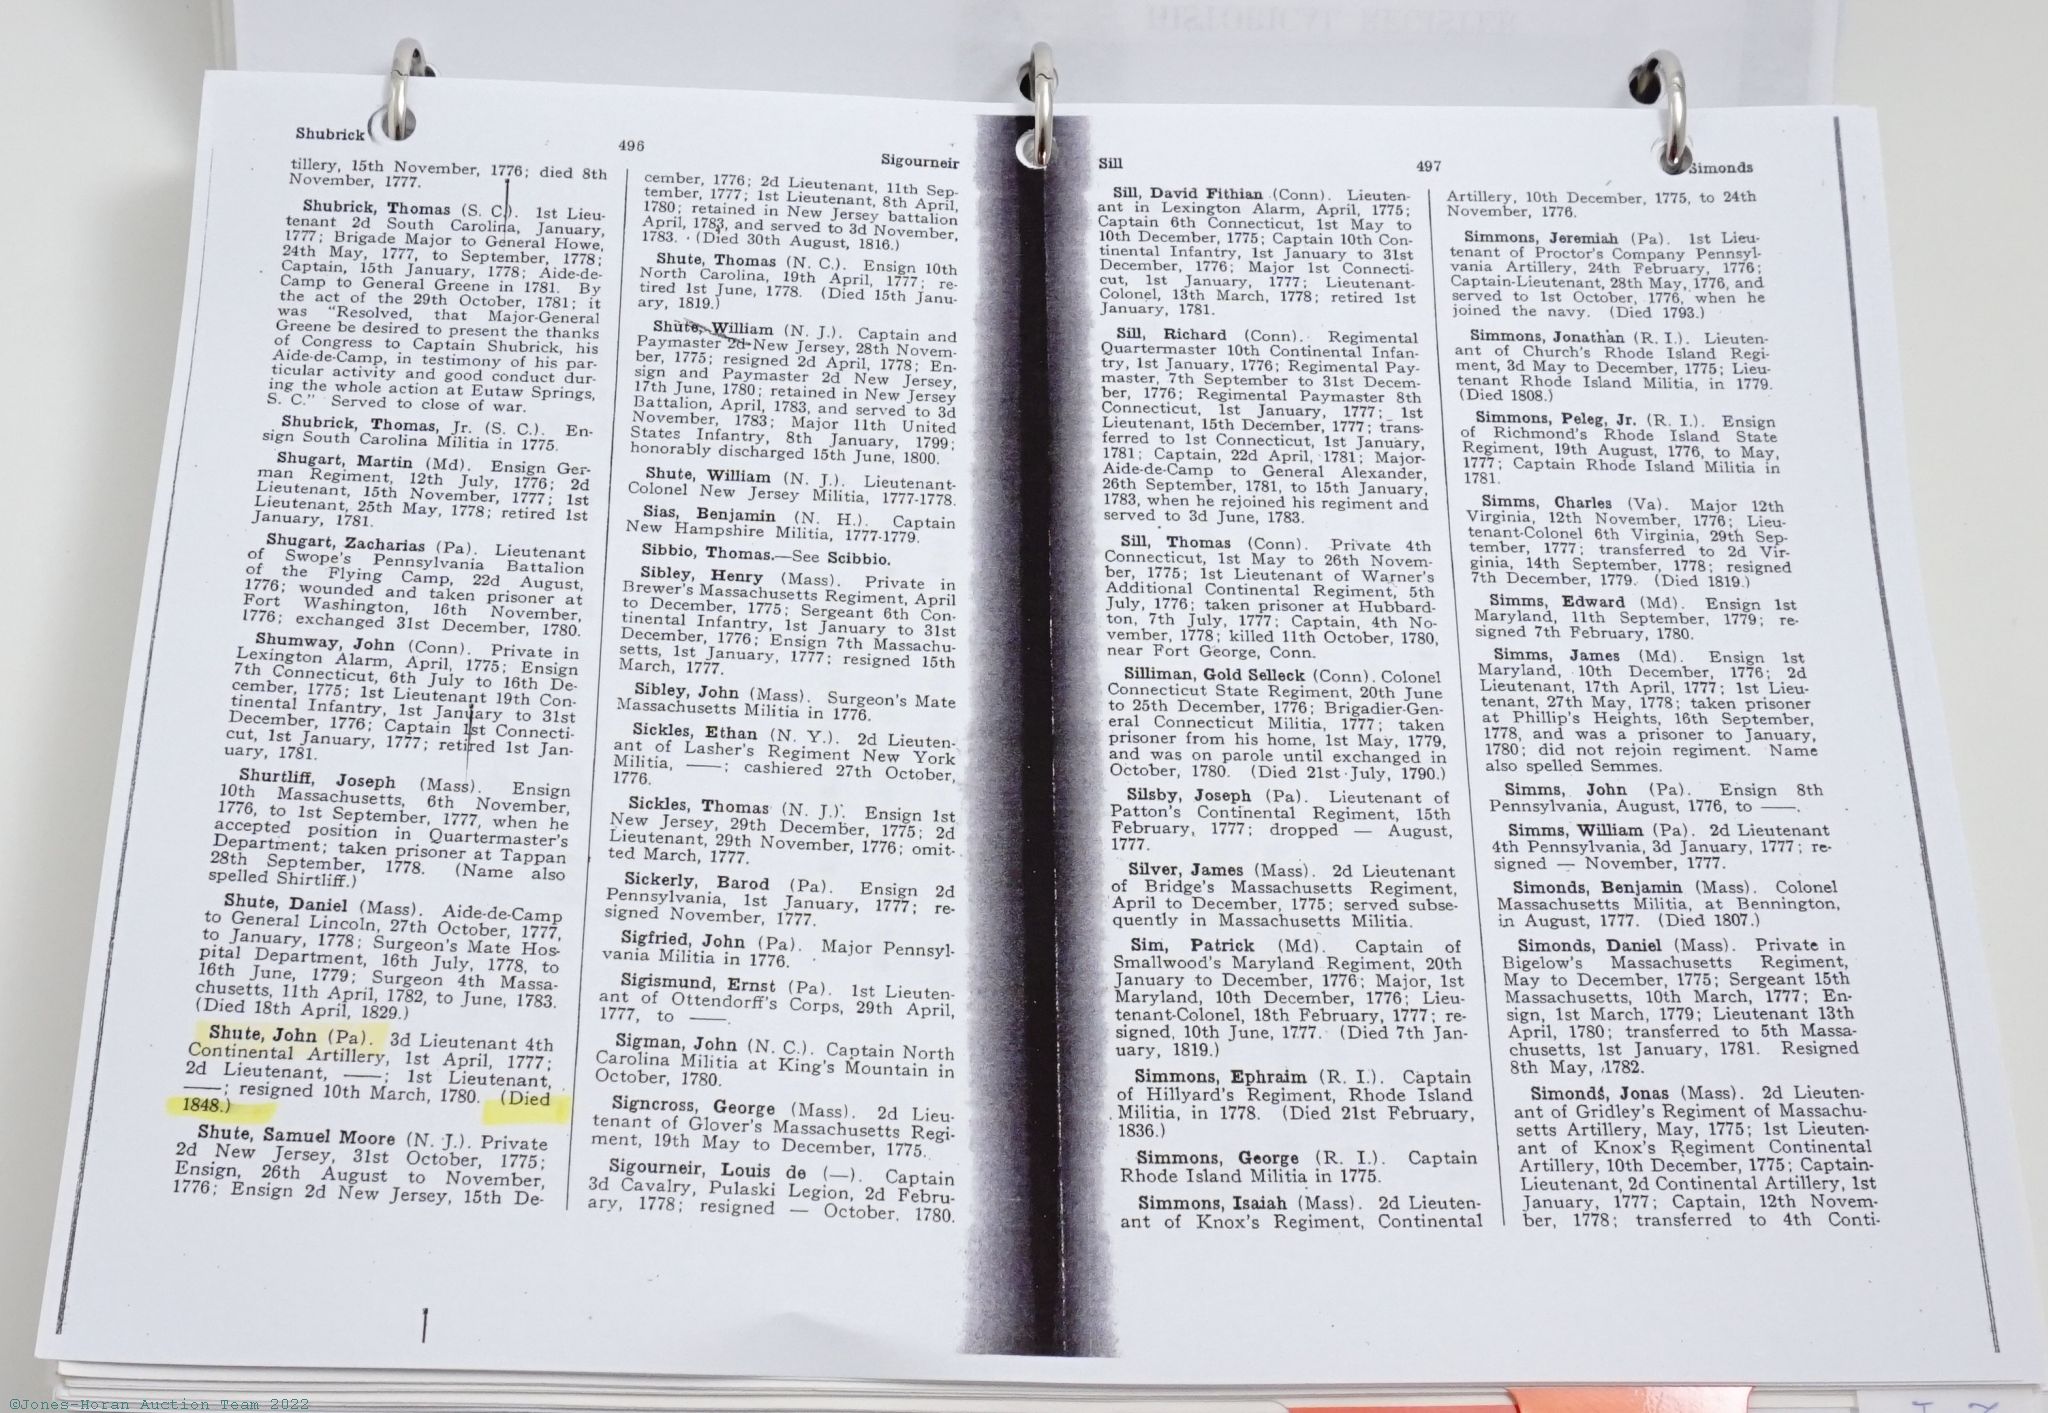 Shubrick
496
Sigourneir
tillery, 15th November, 1776; died 8th
November, 1777.
Shubrick, Thomas (S. C.). 1st Lieu-
tenant 2d South Carolina, January,
1777; Brigade Major to General Howe,
24th May, 1777, to September, 1778;
Captain, 15th January, 1778; Aide-de-
Camp to General Greene in 1781. By
the act of the 29th October, 1781; it
was "Resolved, that Major-General
Greene be desired to present the thanks
of Congress to Captain Shubrick, his
Aide-de-Camp, in testimony of his par-
ticular activity and good conduct dur-
ing the whole action at Eutaw Springs,
S. C." Served to close of war.
Shubrick, Thomas, Jr. (S. C.). En-
sign South Carolina Militia in 1775.
Shugart, Martin (Md). Ensign Ger-
man Regiment, 12th July, 1776; 2d
Lieutenant, 15th November, 1777; 1st
Lieutenant, 25th May, 1778; retired 1st
January, 1781.
Shugart, Zacharias (Pa). Lieutenant
of Swope's Pennsylvania Battalion
of the Flying Camp, 22d August,
1776; wounded and taken prisoner at
Fort Washington, 16th November,
1776; exchanged 31st December, 1780.
Shumway, John (Conn). Private in
Lexington Alarm, April, 1775; Ensign
7th Connecticut, 6th July to 16th De-
cember, 1775; 1st Lieutenant 19th Con-
tinental Infantry, 1st January to 31st
December, 1776; Captain 1st Connecti-
cut, 1st January, 1777; retired 1st Jan-
uary, 1781.
Shurtliff, Joseph (Mass). Ensign
10th Massachusetts, 6th November,
1776, to 1st September, 1777, when he
accepted position in Quartermaster's
Department; taken prisoner at Tappan
28th September, 1778. (Name also
spelled Shirtliff.)
Shute, Daniel (Mass). Aide-de-Camp
to General Lincoln, 27th October, 1777,
to January, 1778; Surgeon's Mate Hos-
pital Department, 16th July, 1778, to
16th June, 1779; Surgeon 4th Massa-
chusetts, 11th April, 1782, to June, 1783.
(Died 18th April, 1829.)
Shute, John (Pa). 3d Lieutenant 4th
Continental Artillery, 1st April, 1777;
2d Lieutenant, ——; 1st Lieutenant,
——; resigned 10th March, 1780. (Died
1848.)
Shute, Samuel Moore (N. J.). Private
2d New Jersey, 31st October, 1775;
Ensign, 26th August to November,
1776; Ensign 2d New Jersey, 15th De-
cember, 1776; 2d Lieutenant, 11th Sep-
tember, 1777; 1st Lieutenant, 8th April,
1780; retained in New Jersey battalion
April, 1783, and served to 3d November,
1783. (Died 30th August, 1816.)
Shute, Thomas (N. C.). Ensign 10th
North Carolina, 19th April, 1777; re-
tired 1st June, 1778. (Died 15th Janu-
ary, 1819.)
Shute, William (N. J.). Captain and
Paymaster 2d New Jersey, 28th Novem-
ber, 1775; resigned 2d April, 1778; En-
sign and Paymaster 2d New Jersey,
17th June, 1780; retained in New Jersey
Battalion, April, 1783, and served to 3d
November, 1783; Major 11th United
States Infantry, 8th January, 1799;
honorably discharged 15th June, 1800.
Shute, William (N. J.). Lieutenant-
Colonel New Jersey Militia, 1777-1778.
Sias, Benjamin (N. H.). Captain
New Hampshire Militia, 1777-1779.
Sibbio, Thomas.—See Scibbio.
Sibley, Henry (Mass). Private in
Brewer's Massachusetts Regiment, April
to December, 1775; Sergeant 6th Con-
tinental Infantry, 1st January to 31st
December, 1776; Ensign 7th Massachu-
setts, 1st January, 1777; resigned 15th
March, 1777.
Sibley, John (Mass). Surgeon's Mate
Massachusetts Militia in 1776.
Sickles, Ethan (N. Y.). 2d Lieuten-
ant of Lasher's Regiment New York
Militia, ——; cashiered 27th October,
1776.
Sickles, Thomas (N. J.). Ensign 1st
New Jersey, 29th December, 1775; 2d
Lieutenant, 29th November, 1776; omit-
ted March, 1777.
Sickerly, Barod (Pa). Ensign 2d
Pennsylvania, 1st January, 1777; re-
signed November, 1777.
Sigfried, John (Pa). Major Pennsyl-
vania Militia in 1776.
Sigismund, Ernst (Pa). 1st Lieuten-
ant of Ottendorff's Corps, 29th April,
1777, to ——.
Sigman, John (N. C.). Captain North
Carolina Militia at King's Mountain in
October, 1780.
Signcross, George (Mass). 2d Lieu-
tenant of Glover's Massachusetts Regi-
ment, 19th May to December, 1775.
Sigourneir, Louis de (—). Captain
3d Cavalry, Pulaski Legion, 2d Febru-
ary, 1778; resigned — October, 1780.
Sill
497
Simonds
Sill, David Fithian (Conn). Lieuten-
ant in Lexington Alarm, April, 1775;
Captain 6th Connecticut, 1st May to
10th December, 1775; Captain 10th Con-
tinental Infantry, 1st January to 31st
December, 1776; Major 1st Connecti-
cut, 1st January, 1777; Lieutenant-
Colonel, 13th March, 1778; retired 1st
January, 1781.
Sill, Richard (Conn). Regimental
Quartermaster 10th Continental Infan-
try, 1st January, 1776; Regimental Pay-
master, 7th September to 31st Decem-
ber, 1776; Regimental Paymaster 8th
Connecticut, 1st January, 1777; 1st
Lieutenant, 15th December, 1777; trans-
ferred to 1st Connecticut, 1st January,
1781; Captain, 22d April, 1781; Major-
Aide-de-Camp to General Alexander,
26th September, 1781, to 15th January,
1783, when he rejoined his regiment and
served to 3d June, 1783.
Sill, Thomas (Conn). Private 4th
Connecticut, 1st May to 26th Novem-
ber, 1775; 1st Lieutenant of Warner's
Additional Continental Regiment, 5th
July, 1776; taken prisoner at Hubbard-
ton, 7th July, 1777; Captain, 4th No-
vember, 1778; killed 11th October, 1780,
near Fort George, Conn.
Silliman, Gold Selleck (Conn). Colonel
Connecticut State Regiment, 20th June
to 25th December, 1776; Brigadier-Gen-
eral Connecticut Militia, 1777; taken
prisoner from his home, 1st May, 1779,
and was on parole until exchanged in
October, 1780. (Died 21st July, 1790.)
Silsby, Joseph (Pa). Lieutenant of
Patton's Continental Regiment, 15th
February, 1777; dropped — August,
1777.
Silver, James (Mass). 2d Lieutenant
of Bridge's Massachusetts Regiment,
April to December, 1775; served subse-
quently in Massachusetts Militia.
Sim, Patrick (Md). Captain of
Smallwood's Maryland Regiment, 20th
January to December, 1776; Major, 1st
Maryland, 10th December, 1776; Lieu-
tenant-Colonel, 18th February, 1777; re-
signed, 10th June, 1777. (Died 7th Jan-
uary, 1819.)
Simmons, Ephraim (R. I.). Captain
of Hillyard's Regiment, Rhode Island
Militia, in 1778. (Died 21st February,
1836.)
Simmons, George (R. I.). Captain
Rhode Island Militia in 1775.
Simmons, Isaiah (Mass). 2d Lieuten-
ant of Knox's Regiment, Continental
Artillery, 10th December, 1775, to 24th
November, 1776.
Simmons, Jeremiah (Pa). 1st Lieu-
tenant of Proctor's Company Pennsyl-
vania Artillery, 24th February, 1776;
Captain-Lieutenant, 28th May, 1776, and
served to 1st October, 1776, when he
joined the navy. (Died 1793.)
Simmons, Jonathan (R. I.). Lieuten-
ant of Church's Rhode Island Regi-
ment, 3d May to December, 1775; Lieu-
tenant Rhode Island Militia, in 1779.
(Died 1808.)
Simmons, Peleg, Jr. (R. I.). Ensign
of Richmond's Rhode Island State
Regiment, 19th August, 1776, to May,
1777; Captain Rhode Island Militia in
1781.
Simms, Charles (Va). Major 12th
Virginia, 12th November, 1776; Lieu-
tenant-Colonel 6th Virginia, 29th Sep-
tember, 1777; transferred to 2d Vir-
ginia, 14th September, 1778; resigned
7th December, 1779. (Died 1819.)
Simms, Edward (Md). Ensign 1st
Maryland, 11th September, 1779; re-
signed 7th February, 1780.
Simms, James (Md). Ensign 1st
Maryland, 10th December, 1776; 2d
Lieutenant, 17th April, 1777; 1st Lieu-
tenant, 27th May, 1778; taken prisoner
at Phillip's Heights, 16th September,
1778, and was a prisoner to January,
1780; did not rejoin regiment. Name
also spelled Semmes.
Simms, John (Pa). Ensign 8th
Pennsylvania, August, 1776, to ——.
Simms, William (Pa). 2d Lieutenant
4th Pennsylvania, 3d January, 1777; re-
signed — November, 1777.
Simonds, Benjamin (Mass). Colonel
Massachusetts Militia, at Bennington,
in August, 1777. (Died 1807.)
Simonds, Daniel (Mass). Private in
Bigelow's Massachusetts Regiment,
May to December, 1775; Sergeant 15th
Massachusetts, 10th March, 1777; En-
sign, 1st March, 1779; Lieutenant 13th
April, 1780; transferred to 5th Massa-
chusetts, 1st January, 1781. Resigned
8th May, 1782.
Simonds, Jonas (Mass). 2d Lieuten-
ant of Gridley's Regiment of Massachu-
setts Artillery, May, 1775; 1st Lieuten-
ant of Knox's Regiment Continental
Artillery, 10th December, 1775; Captain-
Lieutenant, 2d Continental Artillery, 1st
January, 1777; Captain, 12th Novem-
ber, 1778; transferred to 4th Conti-
©Jones-Horan Auction Team 2022